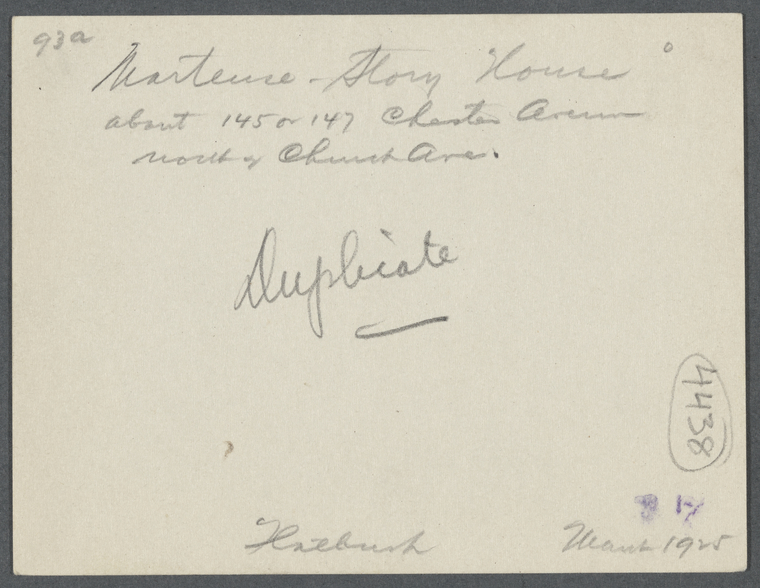 93a
Martense - Story House
about 145 or 147 Chester Avenue
north of Church Ave.
Duplicate
4438
17
Flatbush
March 1925